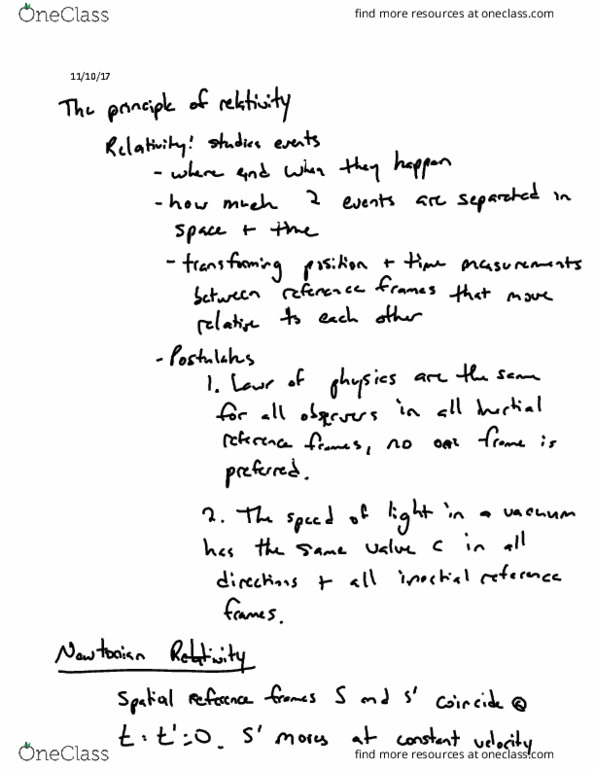 OneClass
find more resources at oneclass.com
11/10/17
The principle of relativity
Relativity: studies events
- where and when they happen
- how much 2 events are separated in
space + time
- transforming position + time measurements
between reference frames that move
relative to each other
- Postulates
1. Laws of physics are the same
for all observers in all inertial
reference frames, no one frame is
preferred.
2. The speed of light in a vacuum
has the same value c in all
directions + all inertial reference
frames.
Newtonian Relativity
Spatial reference frames S and S' coincide @
t = t' = 0. S' moves at constant velocity
OneClass
find more resources at oneclass.com